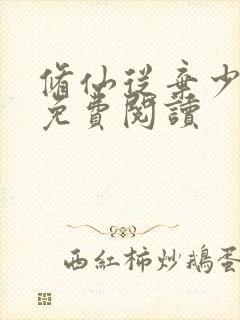 脩仙從棄少
免費閱讀
西紅柿炒鵝蛋